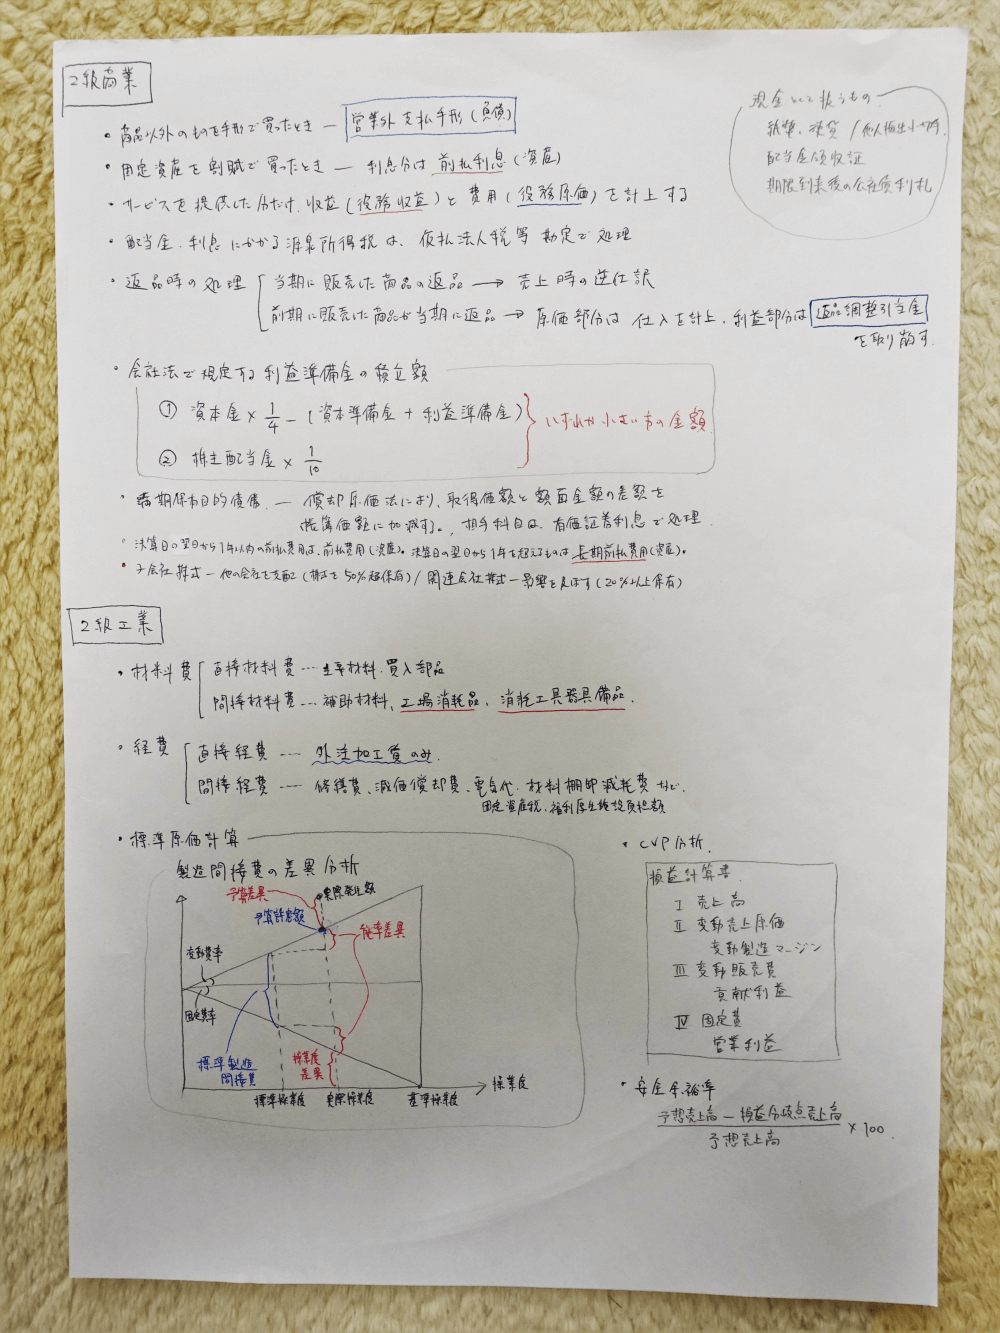 2級商業
現金として扱うもの
紙幣、硬貨 / 他人振出小切手
配当金領収証
期限到来後の公社債利札
・商品以外のものを手形で買ったとき ― 営業外支払手形(負債)
・固定資産を割賦で買ったとき ― 利息分は前払利息(資産)
・サービスを提供した分だけ、収益(役務収益)と費用(役務原価)を計上する
・配当金、利息にかかる源泉所得税は、仮払法人税等勘定で処理
・返品時の処理
当期に販売した商品の返品 → 売上時の逆仕訳
前期に販売した商品が当期に返品 → 原価部分は仕入を計上、利益部分は返品調整引当金
を取り崩す.
・会社法で規定する利益準備金の積立額
① 資本金 × 1/4 − (資本準備金 + 利益準備金)
② 株主配当金 × 1/10
いずれか小さい方の金額
・満期保有目的債券 ― 償却原価法により、取得価額と額面金額の差額を
帳簿価額に加減する。, 相手科目は、有価証券利息で処理.
・決算日の翌日から1年以内の前払費用は、前払費用(資産)。決算日の翌日から1年を超えるものは長期前払費用(資産)。
・子会社株式 ― 他の会社を支配(株式を50%超保有) / 関連会社株式 ― 影響を及ぼす(20%以上保有)
2級工業
・材料費
直接材料費 … 主要材料、買入部品
間接材料費 … 補助材料、工場消耗品、消耗工具器具備品.
・経費
直接経費 --- 外注加工賃のみ.
間接経費 --- 修繕費、減価償却費、電気代、材料棚卸減耗費など.
固定資産税、福利厚生施設負担額
・標準原価計算
製造間接費の差異分析
予算差異
実際発生額
予算許容額
能率差異
変動費率
固定費率
標準製造
間接費
操業度
差異
標準操業度
実際操業度
基準操業度
操業度
・CVP分析.
損益計算書
Ⅰ 売上高
Ⅱ 変動売上原価
変動製造マージン
Ⅲ 変動販売費
貢献利益
Ⅳ 固定費
営業利益
・安全余裕率
予想売上高 − 損益分岐点売上高
予想売上高
× 100.